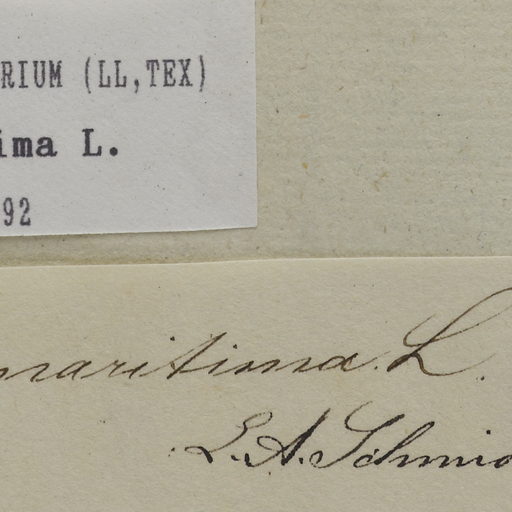 RIUM (LL,TEX)
ima L.
92
maritima. L.
L. A. Schmid